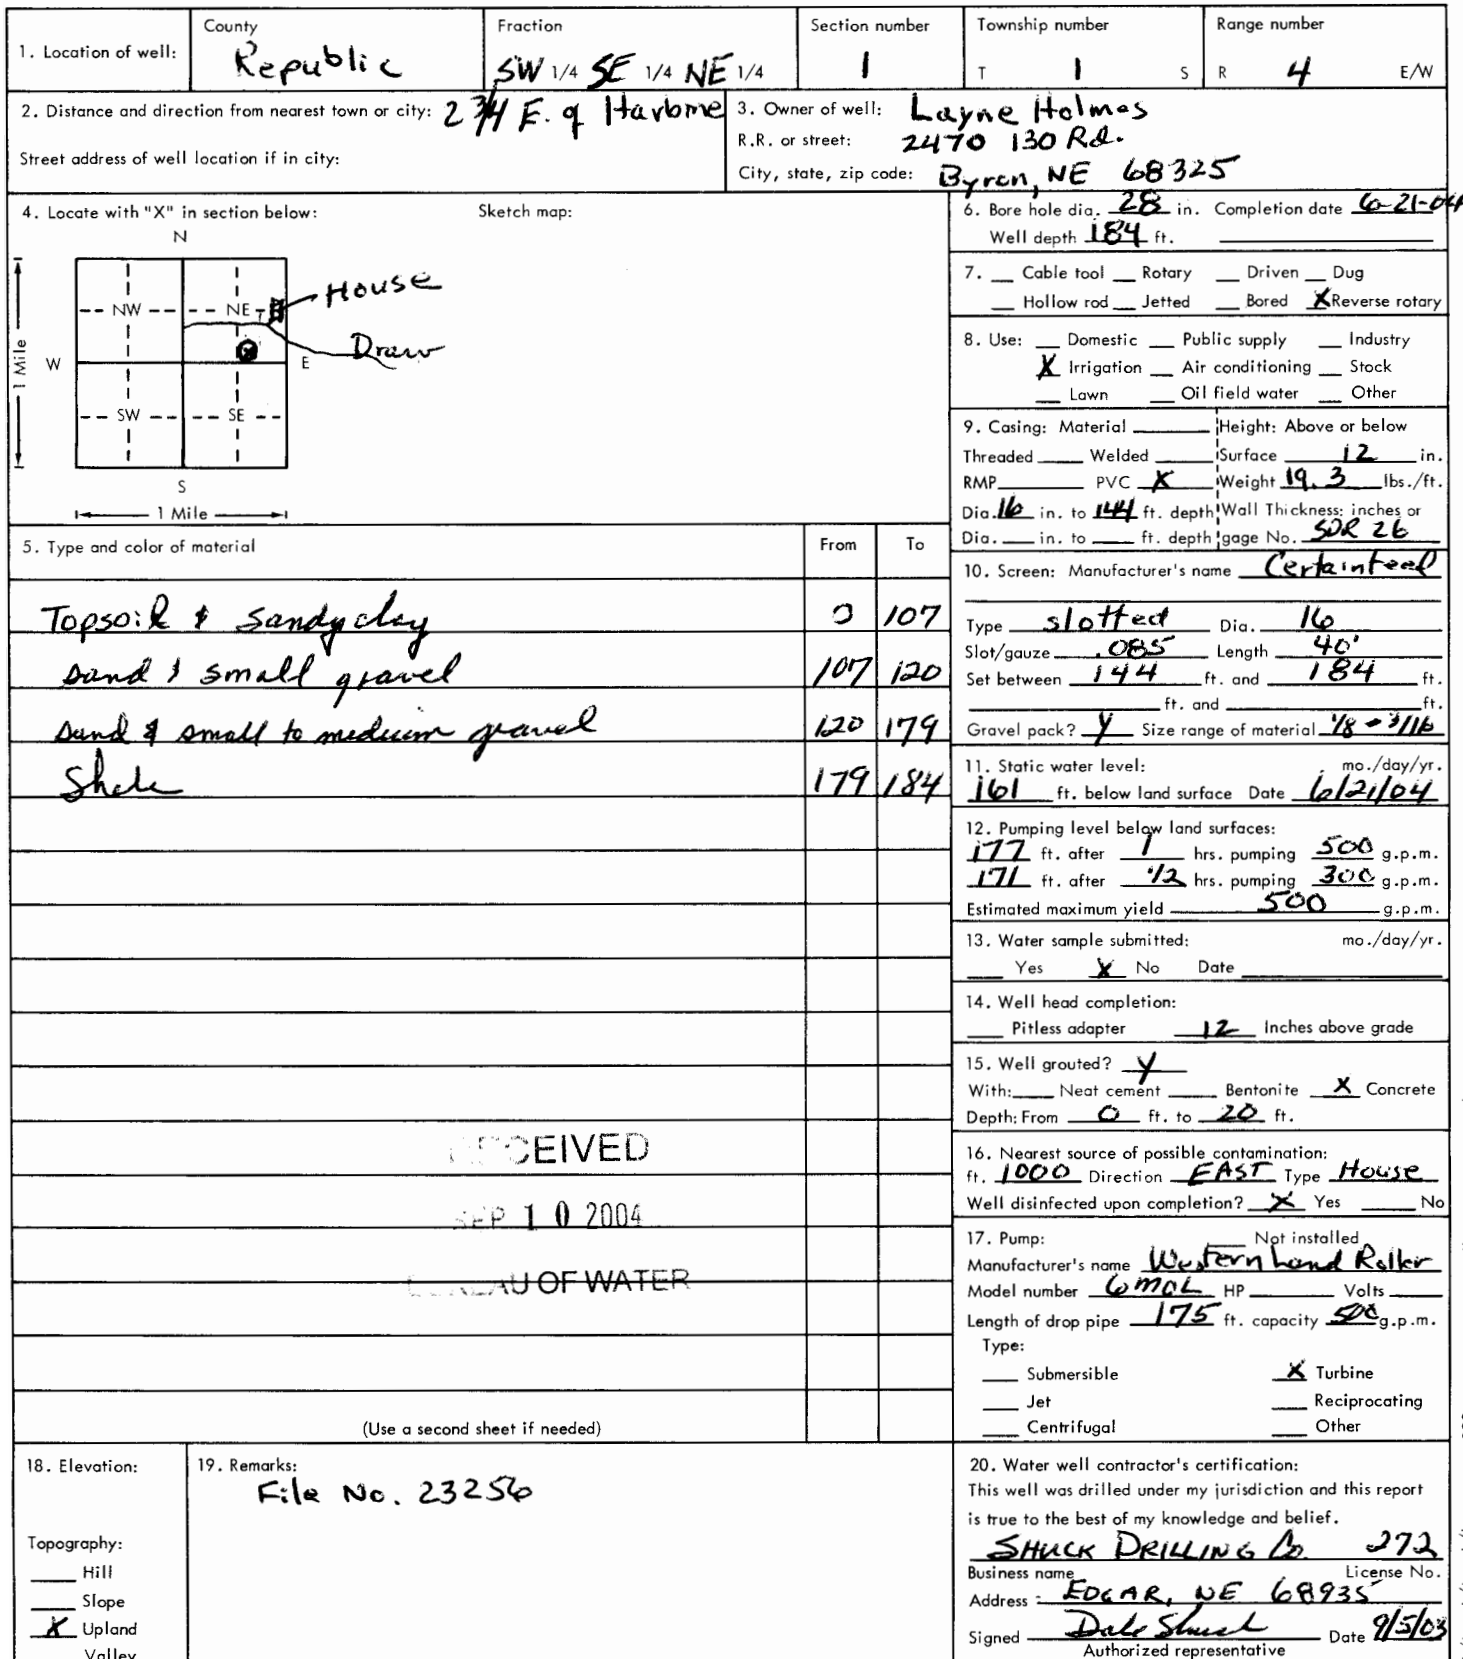 1. Location of well: County Republic Fraction SW 1/4 SE 1/4 NE 1/4 Section number 1 Township number T 1 S Range number R 4 E/W
2. Distance and direction from nearest town or city: 2 3/4 E. of
Street address of well location if in city:
3. Owner of well: Layne Holmes
R.R. or street: 2470 130 Rd.
City, state, zip code: Byron, NE 68325
4. Locate with "X" in section below: Sketch map:
N
NW NE House
W E Draw
SW SE
S
1 Mile
1 Mile
5. Type and color of material From To
Topsoil & sandy clay 0 107
sand & small gravel 107 120
sand & small to medium gravel 120 179
Shale 179 184
RECEIVED
SEP 10 2004
BUREAU OF WATER
(Use a second sheet if needed)
6. Bore hole dia. 28 in. Completion date 6-21-04
Well depth 184 ft.
7. Cable tool Rotary Driven Dug
Hollow rod Jetted Bored X Reverse rotary
8. Use: Domestic Public supply Industry
X Irrigation Air conditioning Stock
Lawn Oil field water Other
9. Casing: Material Height: Above or below
Threaded Welded Surface 12 in.
RMP PVC X Weight 19.3 lbs./ft.
Dia. 16 in. to 144 ft. depth Wall Thickness: inches or
Dia. in. to ft. depth gage No. SDR 26
10. Screen: Manufacturer's name Certainteed
Type slotted Dia. 16
Slot/gauze .085 Length 40'
Set between 144 ft. and 184 ft.
ft. and ft.
Gravel pack? Y Size range of material 1/8 - 3/16
11. Static water level: mo./day/yr.
161 ft. below land surface Date 6/21/04
12. Pumping level below land surfaces:
177 ft. after 1 hrs. pumping 500 g.p.m.
171 ft. after 1/2 hrs. pumping 300 g.p.m.
Estimated maximum yield 500 g.p.m.
13. Water sample submitted: mo./day/yr.
Yes X No Date
14. Well head completion:
Pitless adapter 12 Inches above grade
15. Well grouted? Y
With: Neat cement Bentonite X Concrete
Depth: From 0 ft. to 20 ft.
16. Nearest source of possible contamination:
ft. 1000 Direction EAST Type House
Well disinfected upon completion? X Yes No
17. Pump: Not installed
Manufacturer's name Western Land Roller
Model number HP Volts
Length of drop pipe 175 ft. capacity 500 g.p.m.
Type:
Submersible X Turbine
Jet Reciprocating
Centrifugal Other
18. Elevation:
Topography:
Hill
Slope
X Upland
Valley
19. Remarks:
File No. 23256
20. Water well contractor's certification:
This well was drilled under my jurisdiction and this report
is true to the best of my knowledge and belief.
SHUCK DRILLING Co. 272
Business name License No.
Address EDGAR, NE 68935
Signed Dale Shuck Date 9/5/03
Authorized representative